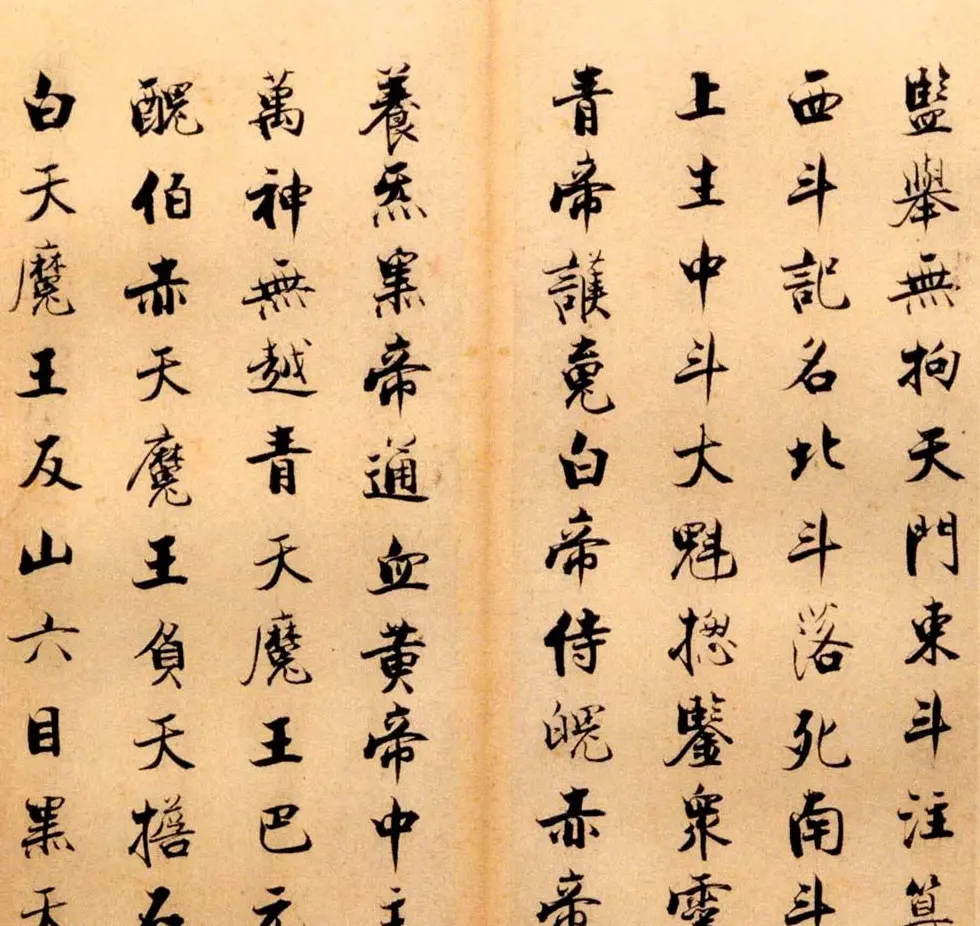 監舉無拘天門東斗注算
西斗記名北斗落死南斗
上生中斗大魁揔鑒眾靈
青帝護䰟白帝侍魄赤帝
養炁黑帝通血黃帝中主
萬神無越青天魔王巴元
醜伯赤天魔王負天擔石
白天魔王反山六目黑天